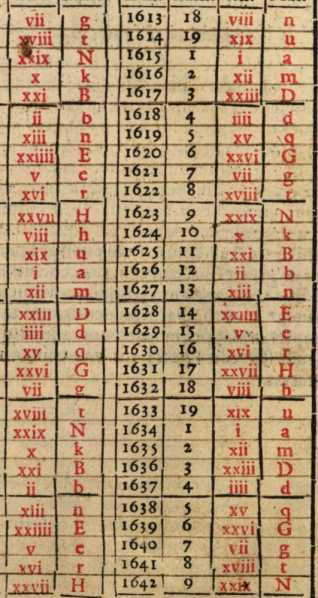 vii g 1613 18 viii n
xviii t 1614 19 xix u
xxix N 1615 1 i a
x k 1616 2 xii m
xxi B 1617 3 xxiii D
ii b 1618 4 iiii d
xiii n 1619 5 xv q
xxiiii E 1620 6 xxvi G
v e 1621 7 vii g
xvi r 1622 8 xviii t
xxvii H 1623 9 xxix N
viii h 1624 10 x k
xix u 1625 11 xxi B
i a 1626 12 ii b
xii m 1627 13 xiii n
xxiii D 1628 14 xxiiii E
iiii d 1629 15 v e
xv q 1630 16 xvi r
xxvi G 1631 17 xxvii H
vii g 1632 18 viii b
xviii t 1633 19 xix u
xxix N 1634 1 i a
x k 1635 2 xii m
xxi B 1636 3 xxiii D
ii b 1637 4 iiii d
xiii n 1638 5 xv q
xxiiii E 1639 6 xxvi G
v e 1640 7 vii g
xvi r 1641 8 xviii t
xxvii H 1642 9 xxix N